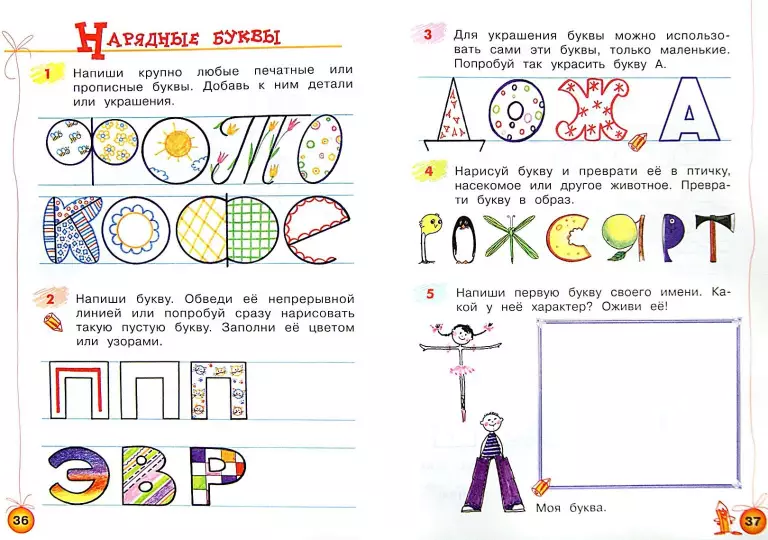 НАРЯДНЫЕ БУКВЫ
1 Напиши крупно любые печатные или
прописные буквы. Добавь к ним детали
или украшения.
Фото
Кофе
2 Напиши букву. Обведи её непрерывной
линией или попробуй сразу нарисовать
такую пустую букву. Заполни её цветом
или узорами.
П П П
Э В Р
36
3 Для украшения буквы можно использо-
вать сами эти буквы, только маленькие.
Попробуй так украсить букву А.
Д О Ж А
4 Нарисуй букву и преврати её в птичку,
насекомое или другое животное. Превра-
ти букву в образ.
Р О Ж С Я Р Т
5 Напиши первую букву своего имени. Ка-
кой у неё характер? Оживи её!
Моя буква.
37